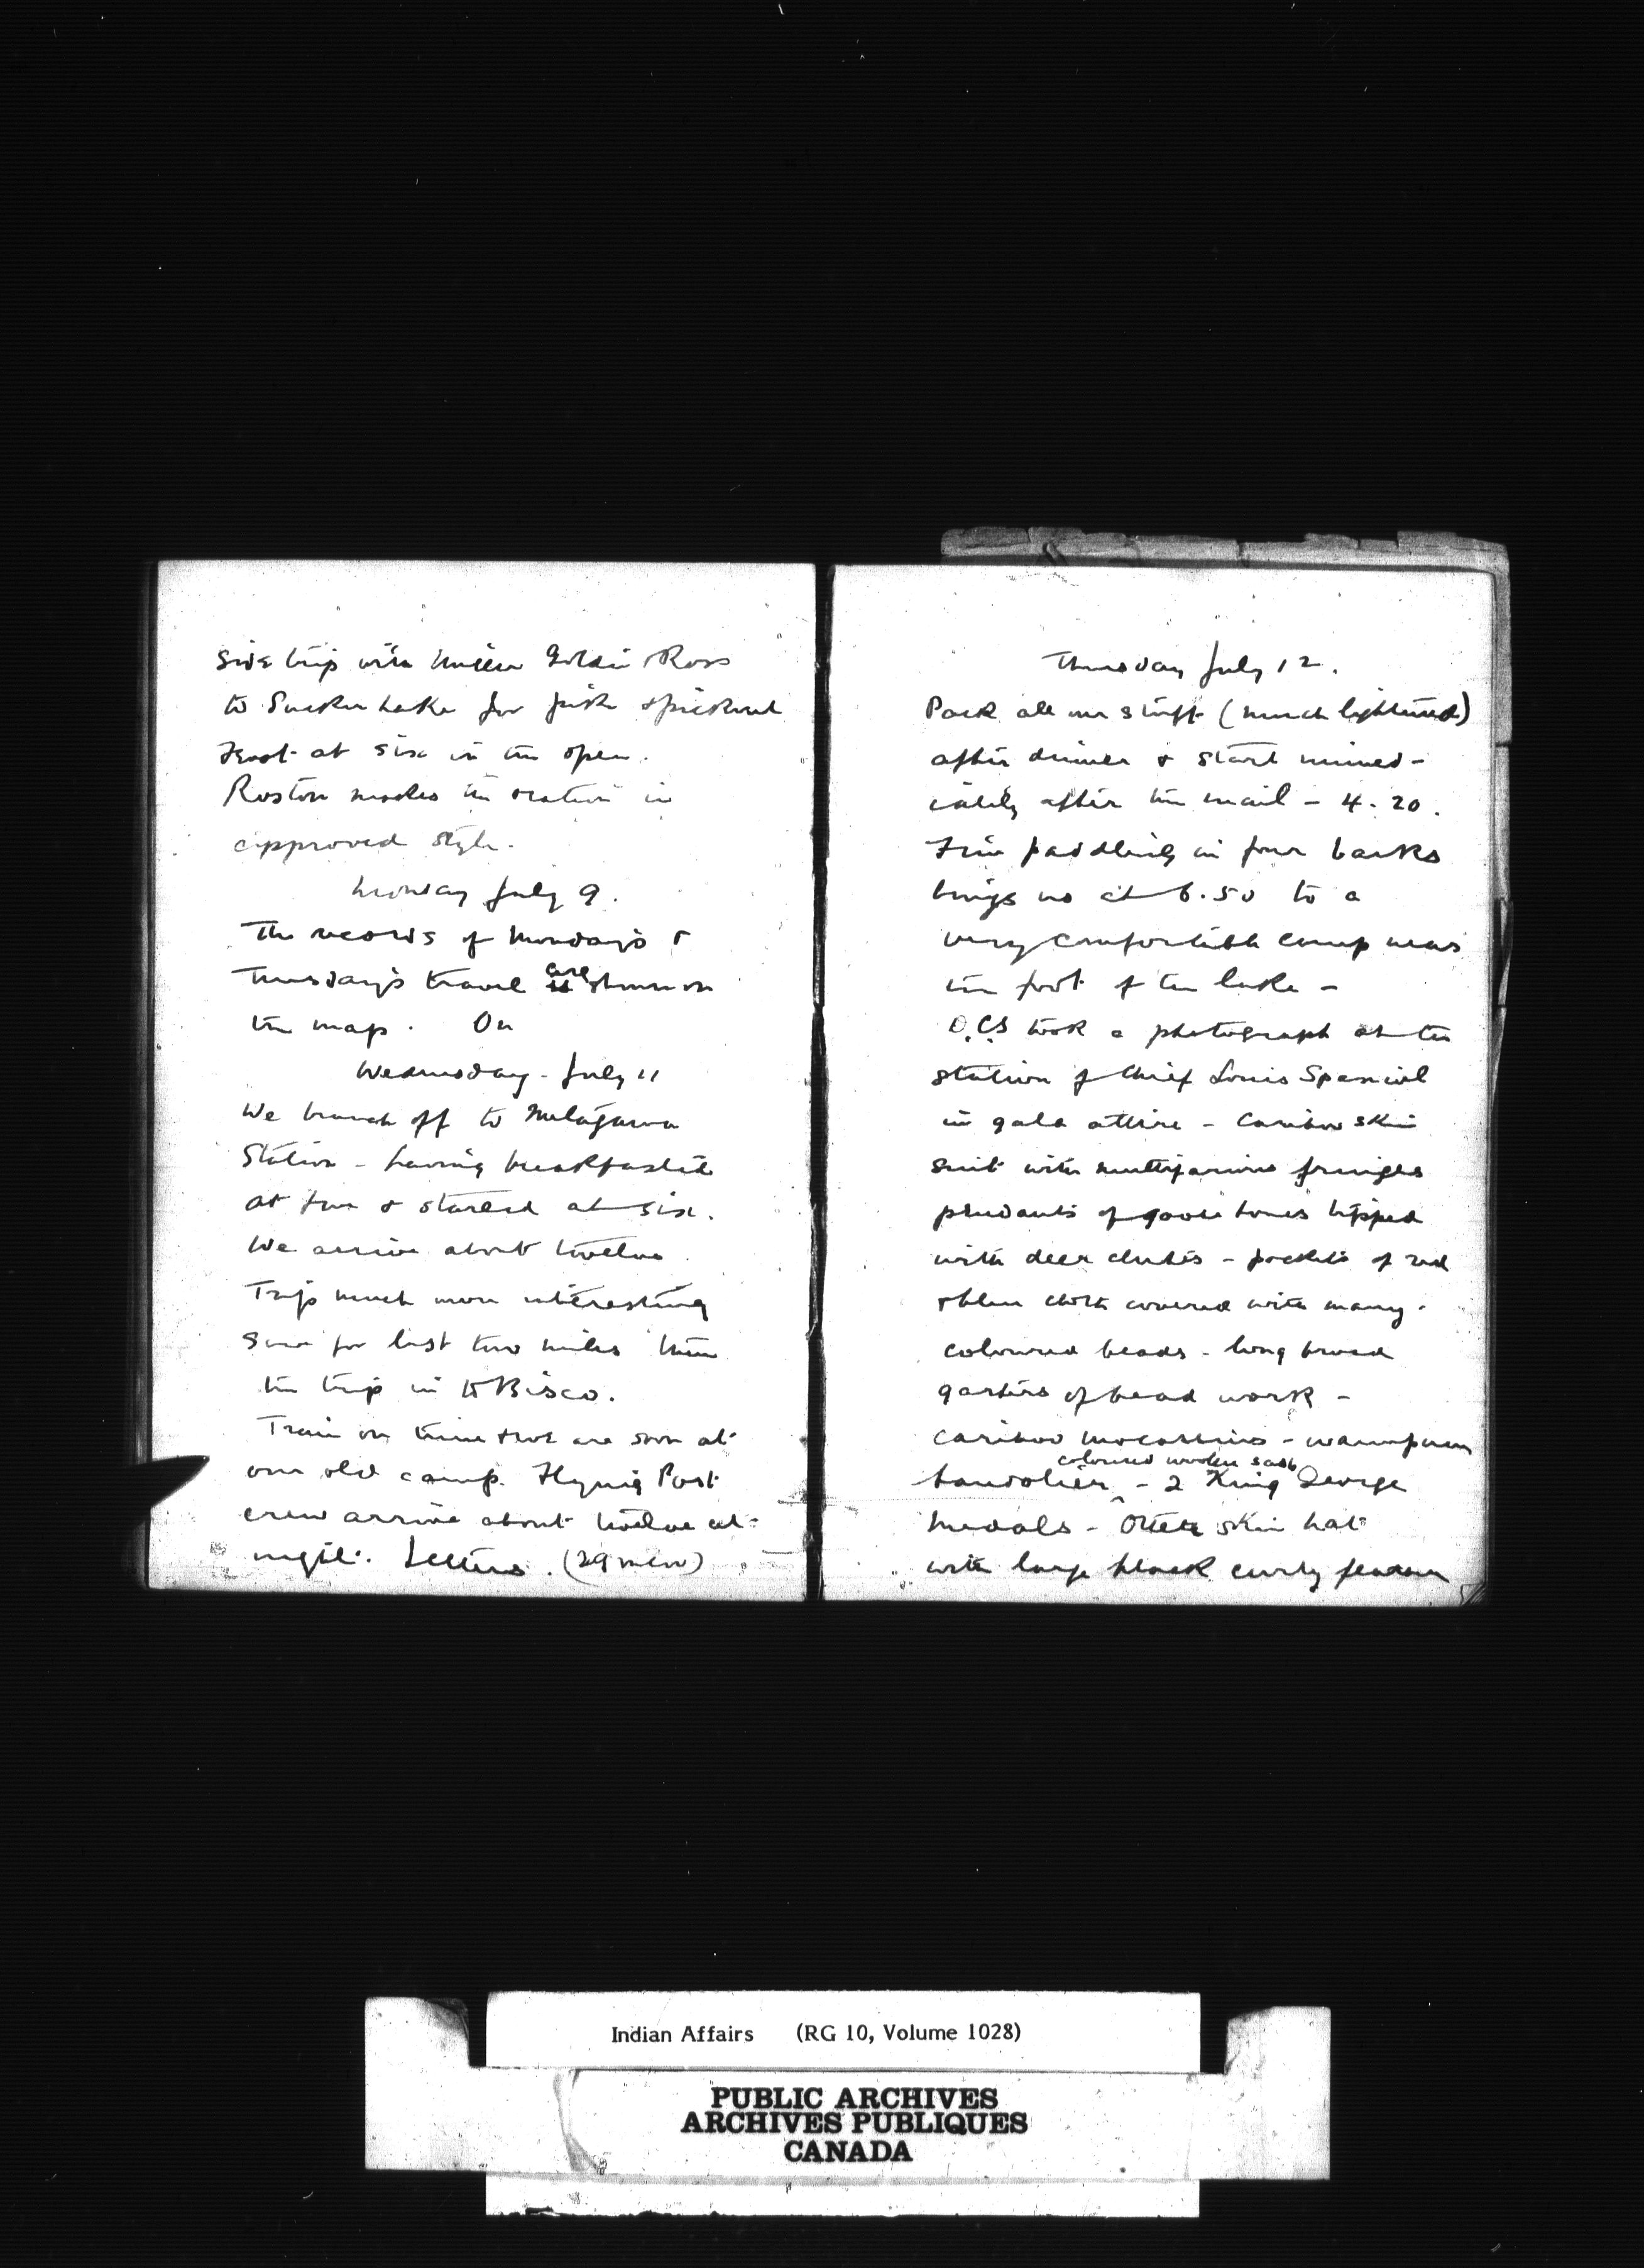 side trip with Miller Goldie & Ross
to Sucker Lake for pike & pickerel
Feast at six in the open.
Roston makes the oration in
approved style.
Monday July 9.
The records of Monday's &
Tuesday's travel are shown on
the map. On
Wednesday - July 11
We branch off to Metagama
Station - having breakfasted
at five & started at six.
We arrive about twelve
Trip much more interesting
save for last two miles than
the trip in to Bisco.
Train on time & we are soon at
our old camp. Flying Post
crew arrive about twelve at
night. Letters. (29 mew)
Thursday July 12.
Pack all our stuff (much lightened)
after dinner & start immed-
iately after the mail - 4.20.
Fine paddling in four barks
brings us at 6.50 to a
very comfortable camp near
the foot of the lake -
D.C.S took a photograph at the
station of Chief Louis Espaniel
in gala attire - Caribou skin
suit with multifarious fringes
pendants of goose bones tipped
with deer clutes - pockets of red
& blue cloth covered with many-
coloured beads - long broad
garters of bead work -
caribou mocassins - wampum
coloured woolen sash
bandolier - 2 King George
medals - Otter skin hat
with large black curly feather
Indian Affairs (RG 10, Volume 1028)
PUBLIC ARCHIVES
ARCHIVES PUBLIQUES
CANADA